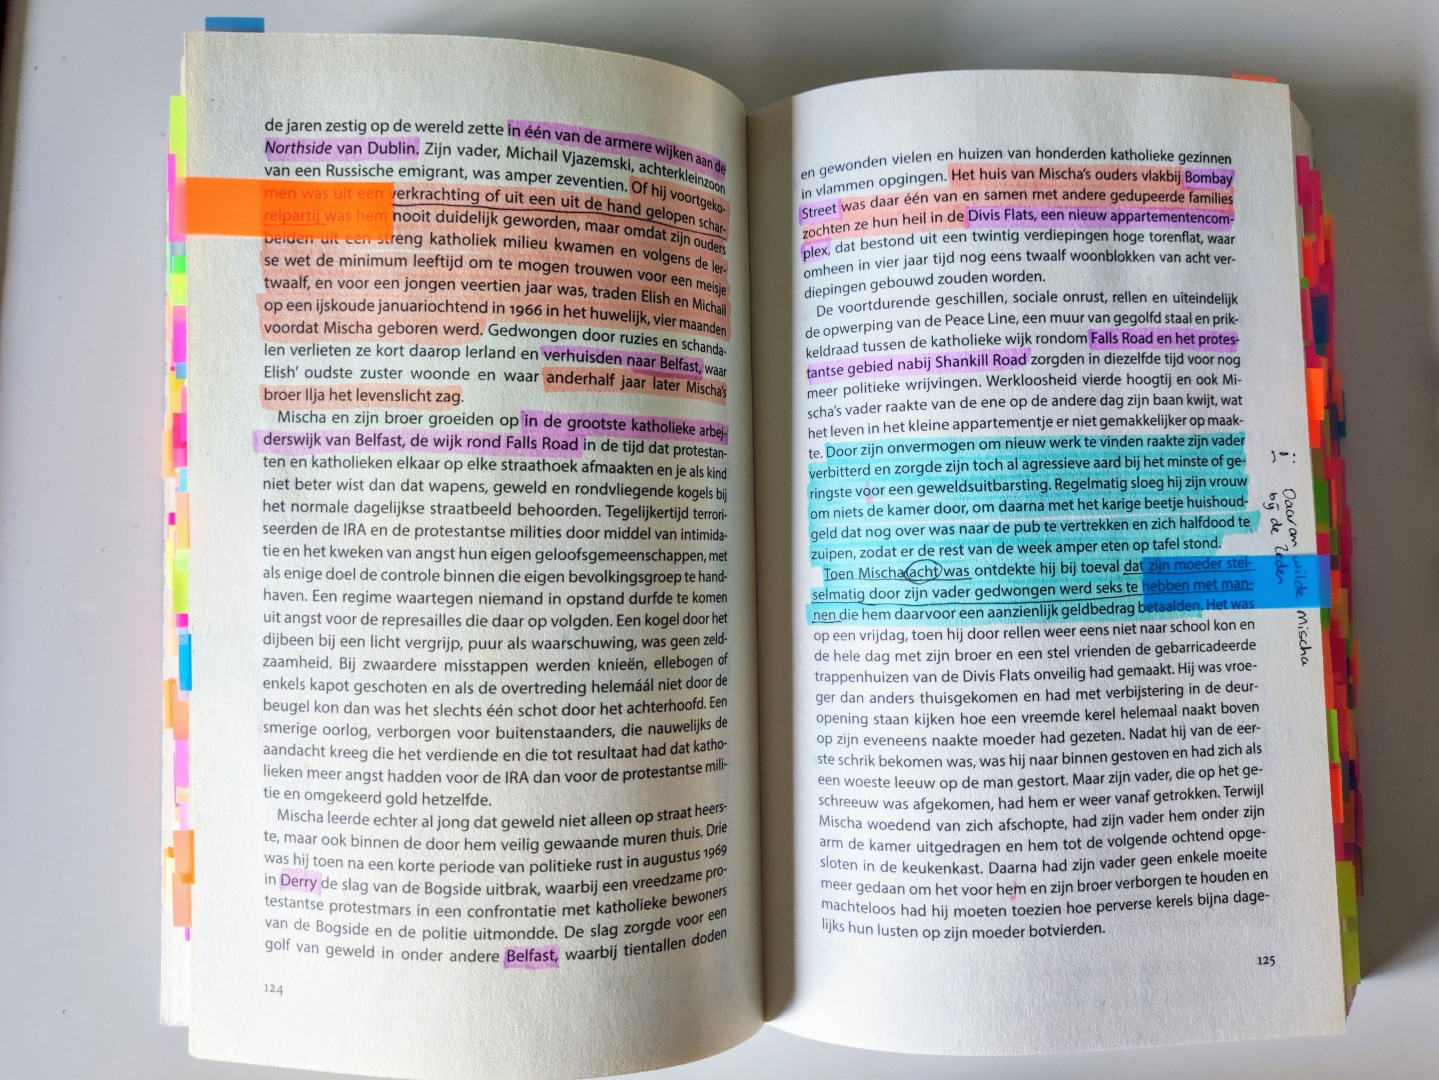 de jaren zestig op de wereld zette in één van de armere wijken aan de
Northside van Dublin. Zijn vader, Michail Vjazemski, achterkleinzoon
van een Russische emigrant, was amper zeventien. Of hij voortgeko-
men was uit een verkrachting of uit een uit de hand gelopen schar-
relpartij was hem nooit duidelijk geworden, maar omdat zijn ouders
beiden uit een streng katholiek milieu kwamen en volgens de Ier-
se wet de minimum leeftijd om te mogen trouwen voor een meisje
twaalf, en voor een jongen veertien jaar was, traden Elish en Michail
op een ijskoude januariochtend in 1966 in het huwelijk, vier maanden
voordat Mischa geboren werd. Gedwongen door ruzies en schanda-
len verlieten ze kort daarop Ierland en verhuisden naar Belfast, waar
Elish’ oudste zuster woonde en waar anderhalf jaar later Mischa’s
broer Ilja het levenslicht zag.
Mischa en zijn broer groeiden op in de grootste katholieke arbei-
derswijk van Belfast, de wijk rond Falls Road in de tijd dat protestan-
ten en katholieken elkaar op elke straathoek afmaakten en je als kind
niet beter wist dan dat wapens, geweld en rondvliegende kogels bij
het normale dagelijkse straatbeeld behoorden. Tegelijkertijd terrori-
seerden de IRA en de protestantse milities door middel van intimida-
tie en het kweken van angst hun eigen geloofsgemeenschappen, met
als enige doel de controle binnen die eigen bevolkingsgroep te hand-
haven. Een regime waartegen niemand in opstand durfde te komen
uit angst voor de represailles die daar op volgden. Een kogel door het
dijbeen bij een licht vergrijp, puur als waarschuwing, was geen zeld-
zaamheid. Bij zwaardere misstappen werden knieën, ellebogen of
enkels kapot geschoten en als de overtreding helemáál niet door de
beugel kon dan was het slechts één schot door het achterhoofd. Een
smerige oorlog, verborgen voor buitenstaanders, die nauwelijks de
aandacht kreeg die het verdiende en die tot resultaat had dat katho-
lieken meer angst hadden voor de IRA dan voor de protestantse mili-
tie en omgekeerd gold hetzelfde.
Mischa leerde echter al jong dat geweld niet alleen op straat heers-
te, maar ook binnen de door hem veilig gewaande muren thuis. Drie
was hij toen na een korte periode van politieke rust in augustus 1969
in Derry de slag van de Bogside uitbrak, waarbij een vreedzame pro-
testantse protestmars in een confrontatie met katholieke bewoners
van de Bogside en de politie uitmondde. De slag zorgde voor een
golf van geweld in onder andere Belfast, waarbij tientallen doden
124
en gewonden vielen en huizen van honderden katholieke gezinnen
in vlammen opgingen. Het huis van Mischa’s ouders vlakbij Bombay
Street was daar één van en samen met andere gedupeerde families
zochten ze hun heil in de Divis Flats, een nieuw appartementencom-
plex, dat bestond uit een twintig verdiepingen hoge torenflat, waar
omheen in vier jaar tijd nog eens twaalf woonblokken van acht ver-
diepingen gebouwd zouden worden.
De voortdurende geschillen, sociale onrust, rellen en uiteindelijk
de opwerping van de Peace Line, een muur van gegolfd staal en prik-
keldraad tussen de katholieke wijk rondom Falls Road en het protes-
tantse gebied nabij Shankill Road zorgden in diezelfde tijd voor nog
meer politieke wrijvingen. Werkloosheid vierde hoogtij en ook Mi-
scha’s vader raakte van de ene op de andere dag zijn baan kwijt, wat
het leven in het kleine appartementje er niet gemakkelijker op maak-
te. Door zijn onvermogen om nieuw werk te vinden raakte zijn vader
verbitterd en zorgde zijn toch al agressieve aard bij het minste of ge-
ringste voor een geweldsuitbarsting. Regelmatig sloeg hij zijn vrouw
om niets de kamer door, om daarna met het karige beetje huishoud-
geld dat nog over was naar de pub te vertrekken en zich halfdood te
zuipen, zodat er de rest van de week amper eten op tafel stond.
Toen Mischa acht was ontdekte hij bij toeval dat zijn moeder stel-
selmatig door zijn vader gedwongen werd seks te hebben met man-
nen die hem daarvoor een aanzienlijk geldbedrag betaalden. Het was
op een vrijdag, toen hij door rellen weer eens niet naar school kon en
de hele dag met zijn broer en een stel vrienden de gebarricadeerde
trappenhuizen van de Divis Flats onveilig had gemaakt. Hij was vroe-
ger dan anders thuisgekomen en had met verbijstering in de deur-
opening staan kijken hoe een vreemde kerel helemaal naakt boven
op zijn eveneens naakte moeder had gezeten. Nadat hij van de eer-
ste schrik bekomen was, was hij naar binnen gestoven en had zich als
een woeste leeuw op de man gestort. Maar zijn vader, die op het ge-
schreeuw was afgekomen, had hem er weer vanaf getrokken. Terwijl
Mischa woedend van zich afschopte, had zijn vader hem onder zijn
arm de kamer uitgedragen en hem tot de volgende ochtend opge-
sloten in de keukenkast. Daarna had zijn vader geen enkele moeite
meer gedaan om het voor hem en zijn broer verborgen te houden en
machteloos had hij moeten toezien hoe perverse kerels bijna dage-
lijks hun lusten op zijn moeder botvierden.
125
Daarom wilde Mischa
bij de Zeden